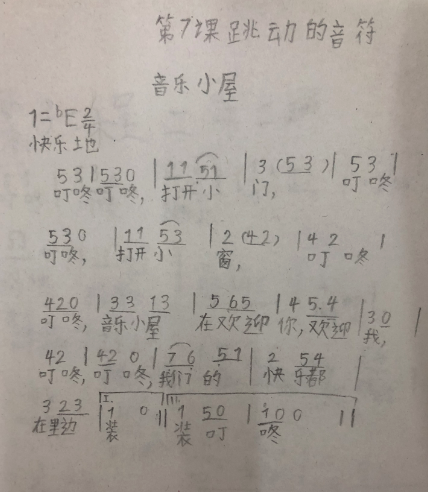 第7课跳动的音符
音乐小屋
1=ᵇE 2/4
快乐土地
53|530|11 51|3(53)|53|
叮咚叮咚,打开小门,叮咚
530|11 53|2(42)|42|
叮咚,打开小窗,叮咚
420|33 13|5 65|45.4|30|
叮咚,音乐小屋在欢迎你,欢迎我,
42|420|76 51|2 54|
叮咚,叮咚,我们的快乐都
3 23|1 0||1 50|100||
在里边装装叮咚